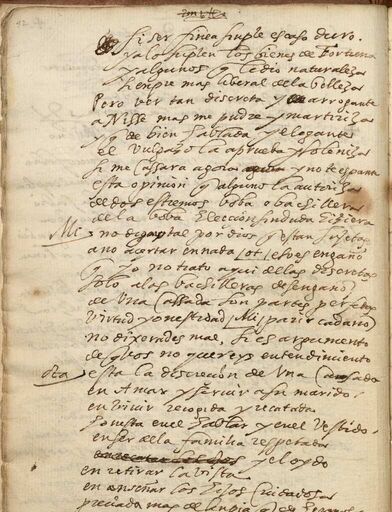 El ser finea simple es caso duro.
ya lo suplen los bienes de Fortuna
y algunos q le dio naturaleza
siempre mas liberal de la belleza
Pero ver tan discreta y arrogante
a Nise mas me pudre y martiriza
y q de bien hablada y elegante
el vulgazo la aprueba y soleniza.
si me cassara agora y no te espante
esta opinion q alguno la autoriza
de dos estremos boba o bachillera
de la boba eleccion sin duda hiziera
Mi. no digays tal por dios q estan sujetas
a no acertar en nada (ot.) eso es engaño
q yo no trato aqui de las discretas
solo a las bachilleras desengaño
de una cassada son partes perfetas
virtud y onestidad (Mi.) parir cadaño
no dixerades mal, si es argumento
de q vos no quereys entendimiento
esta la discrecion de una cassada
en amar y servir a su marido
en vivir recogida y recatada
honesta en el hablar y en el vestido.
en ser de la familia respetada
y el oydo
en retirar la vista
en enseñar los hijos cuidadosa
preciada mas de limpia q de hermosa